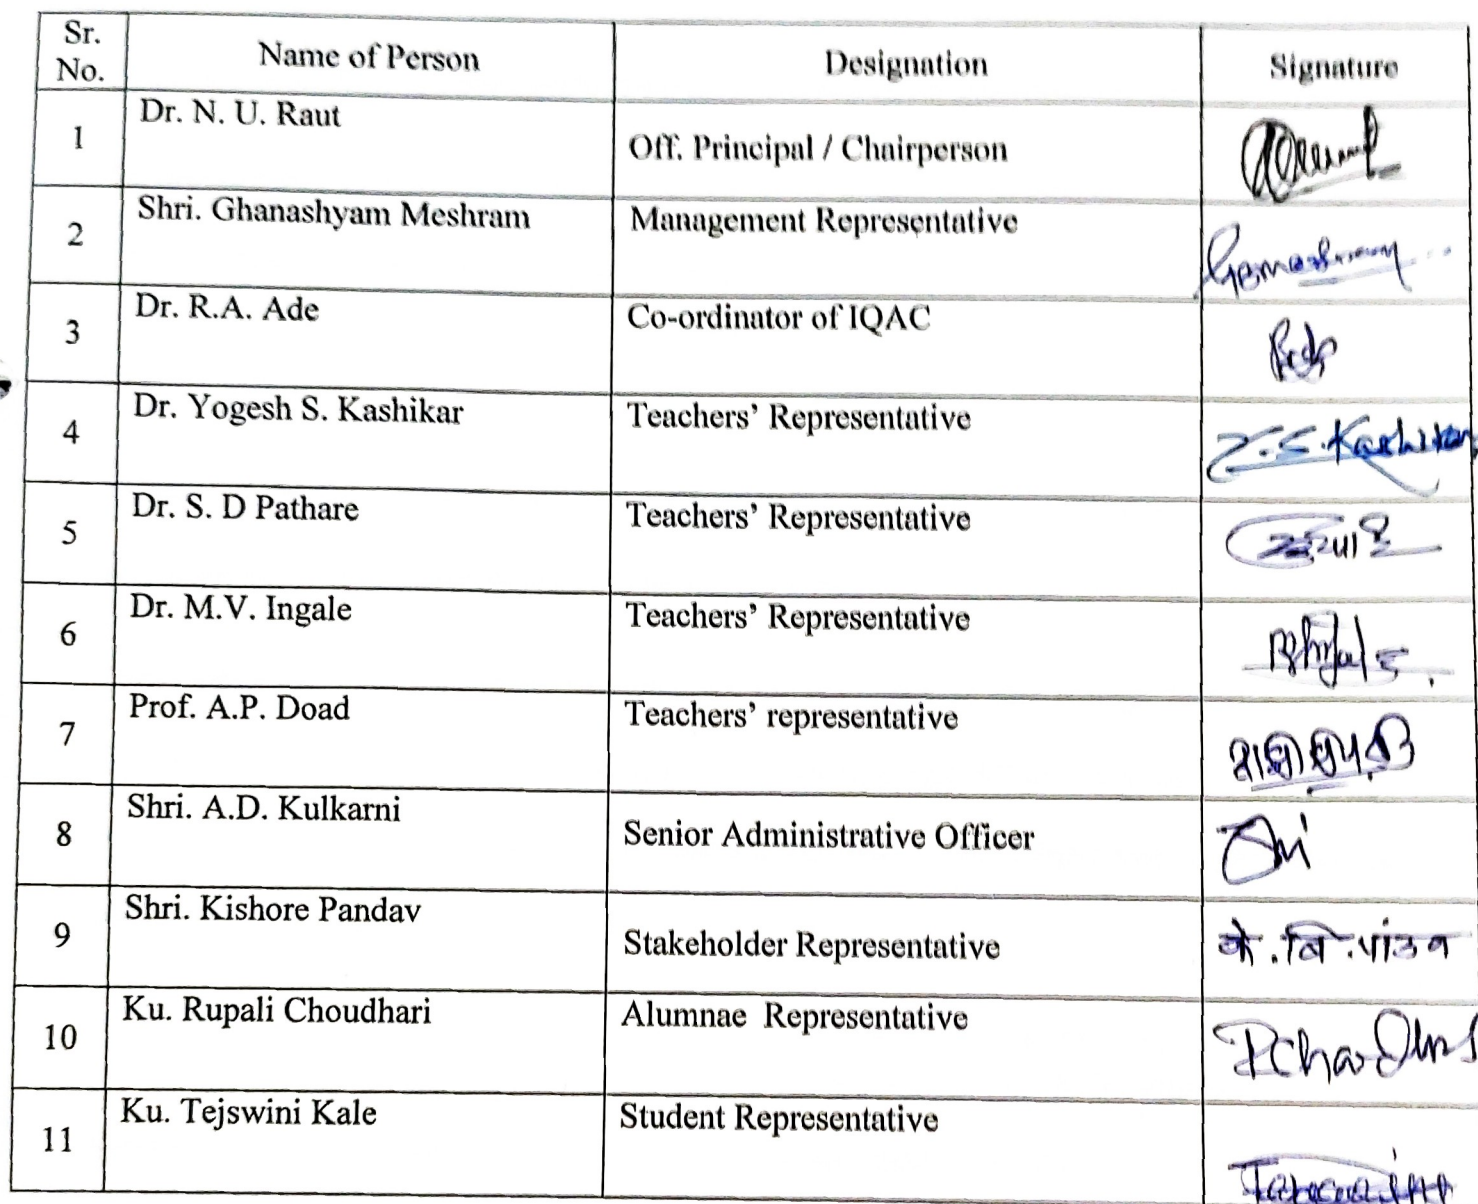 Sr. No. Name of Person Designation Signature
1 Dr. N. U. Raut Off. Principal / Chairperson
2 Shri. Ghanashyam Meshram Management Representative
3 Dr. R.A. Ade Co-ordinator of IQAC
4 Dr. Yogesh S. Kashikar Teachers' Representative Y.S.Kashikar
5 Dr. S. D Pathare Teachers' Representative
6 Dr. M.V. Ingale Teachers' Representative
7 Prof. A.P. Doad Teachers' representative
8 Shri. A.D. Kulkarni Senior Administrative Officer
9 Shri. Kishore Pandav Stakeholder Representative के.वि.पांडव
10 Ku. Rupali Choudhari Alumnae Representative
11 Ku. Tejswini Kale Student Representative